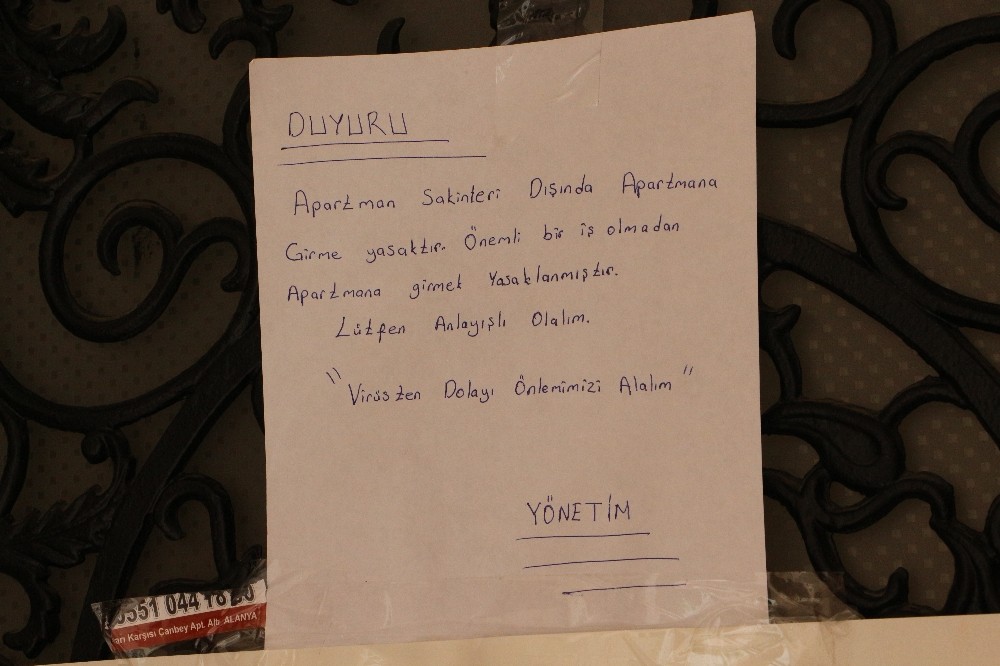 DUYURU
Apartman Sakinleri Dışında Apartmana
Girme yasaktır. Önemli bir iş olmadan
Apartmana girmek Yasaklanmıştır.
Lütfen Anlayışlı Olalım.
"Virüsten Dolayı Önlemimizi Alalım"
YÖNETİM
0551 044
Karşısı Canbey Apt. Altı ALANYA